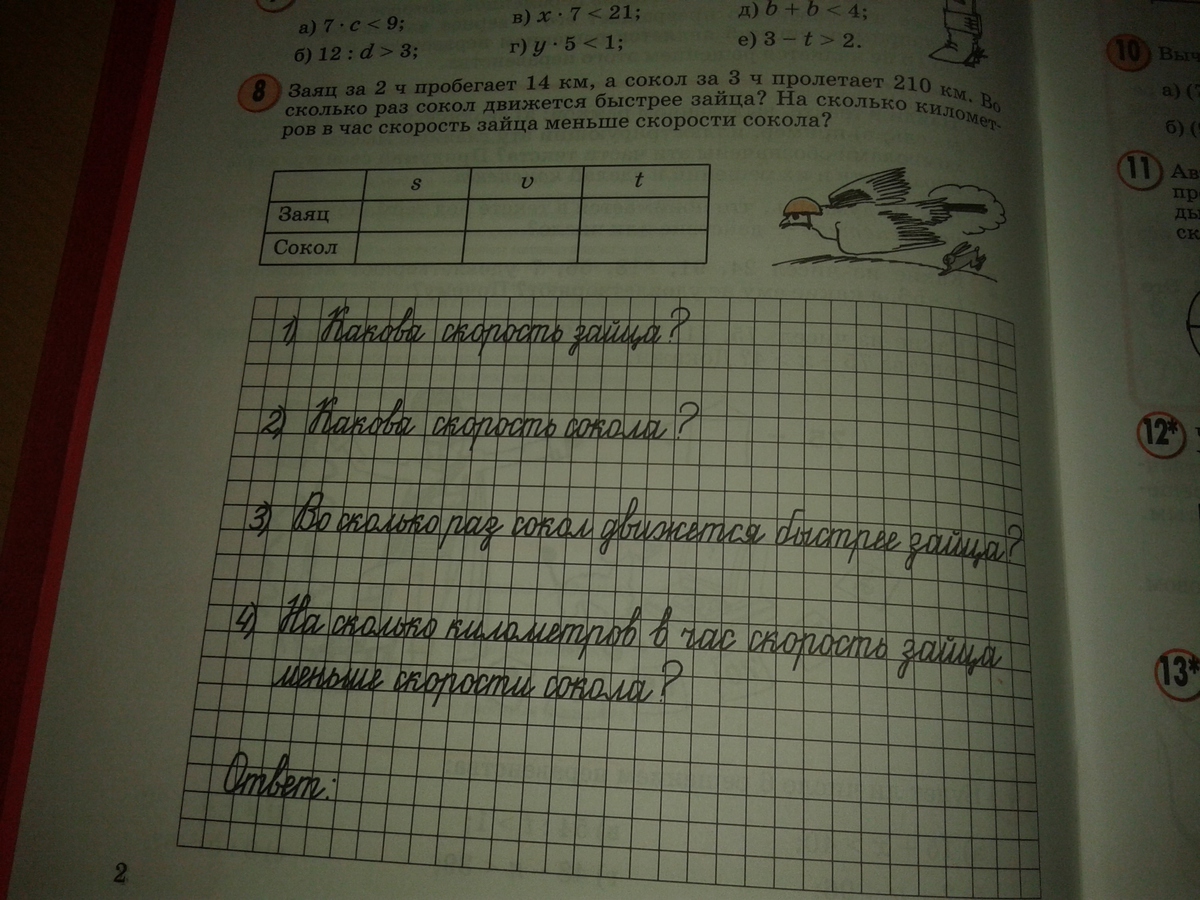 а) 7 · c < 9;
в) x · 7 < 21;
д) b + b < 4;
б) 12 : d > 3;
г) y · 5 < 1;
е) 3 − t > 2.
8 Заяц за 2 ч пробегает 14 км, а сокол за 3 ч пролетает 210 км. Во
сколько раз сокол движется быстрее зайца? На сколько километ-
ров в час скорость зайца меньше скорости сокола?
s v t
Заяц
Сокол
1) Какова скорость зайца?
2) Какова скорость сокола?
3) Во сколько раз сокол движется быстрее зайца?
4) На сколько километров в час скорость зайца
меньше скорости сокола?
Ответ:
2
10 Выч
а) (7
б) (
11 Ав
пр
ды
ск
12*
13*